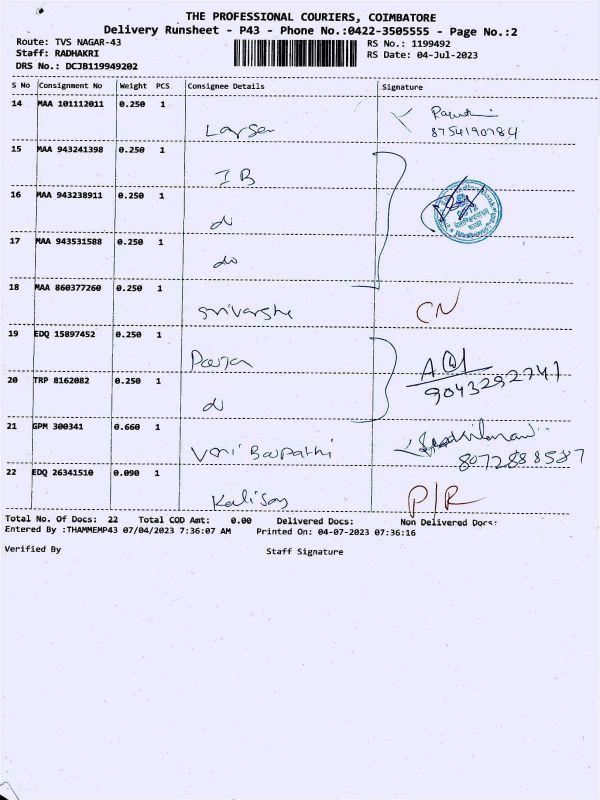 THE PROFESSIONAL COURIERS, COIMBATORE
Delivery Runsheet - P43 - Phone No.:0422-3505555 - Page No.:2
Route: TVS NAGAR-43
RS No.: 1199492
Staff: RADHAKRI
RS Date: 04-Jul-2023
DRS No.: DCJB119949202
S No Consignment No Weight PCS Consignee Details Signature
14 MAA 101112011 0.250 1
Larsen 8754190784
15 MAA 943241398 0.250 1
IB
16 MAA 943238911 0.250 1
do
17 MAA 943531588 0.250 1
do
18 MAA 860377260 0.250 1
CN
19 EDQ 15897452 0.250 1
Pooja
20 TRP 8162082 0.250 1
do 9043292741
21 GPM 300341 0.660 1
8072888587
22 EDQ 26341510 0.090 1
P/R
Total No. Of Docs: 22 Total COD Amt: 0.00 Delivered Docs: Non Delivered Docs:
Entered By :THAMMEMP43 07/04/2023 7:36:07 AM Printed On: 04-07-2023 07:36:16
Verified By Staff Signature